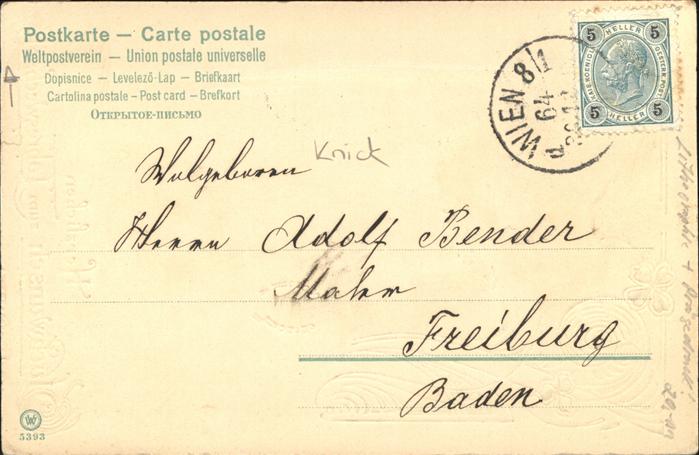 Postkarte — Carte postale
Weltpostverein — Union postale universelle
Dopisnice — Levelező-Lap — Briefkaart
Cartolina postale - Post card - Brefkort
ОТКРЫТОЕ-ПИСЬМО
WIEN 8/1
64
5 HELLER 5
5 HELLER 5
Knick
Wolgeboren
Herrn Adolf Bender
Maler
Freiburg
Baden
W
5393